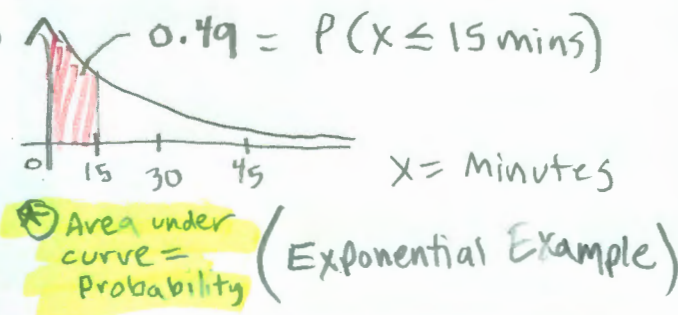 0.49 = P(X ≤ 15 mins)
0 15 30 45
X = Minutes
* Area under
curve =
Probability
(Exponential Example)